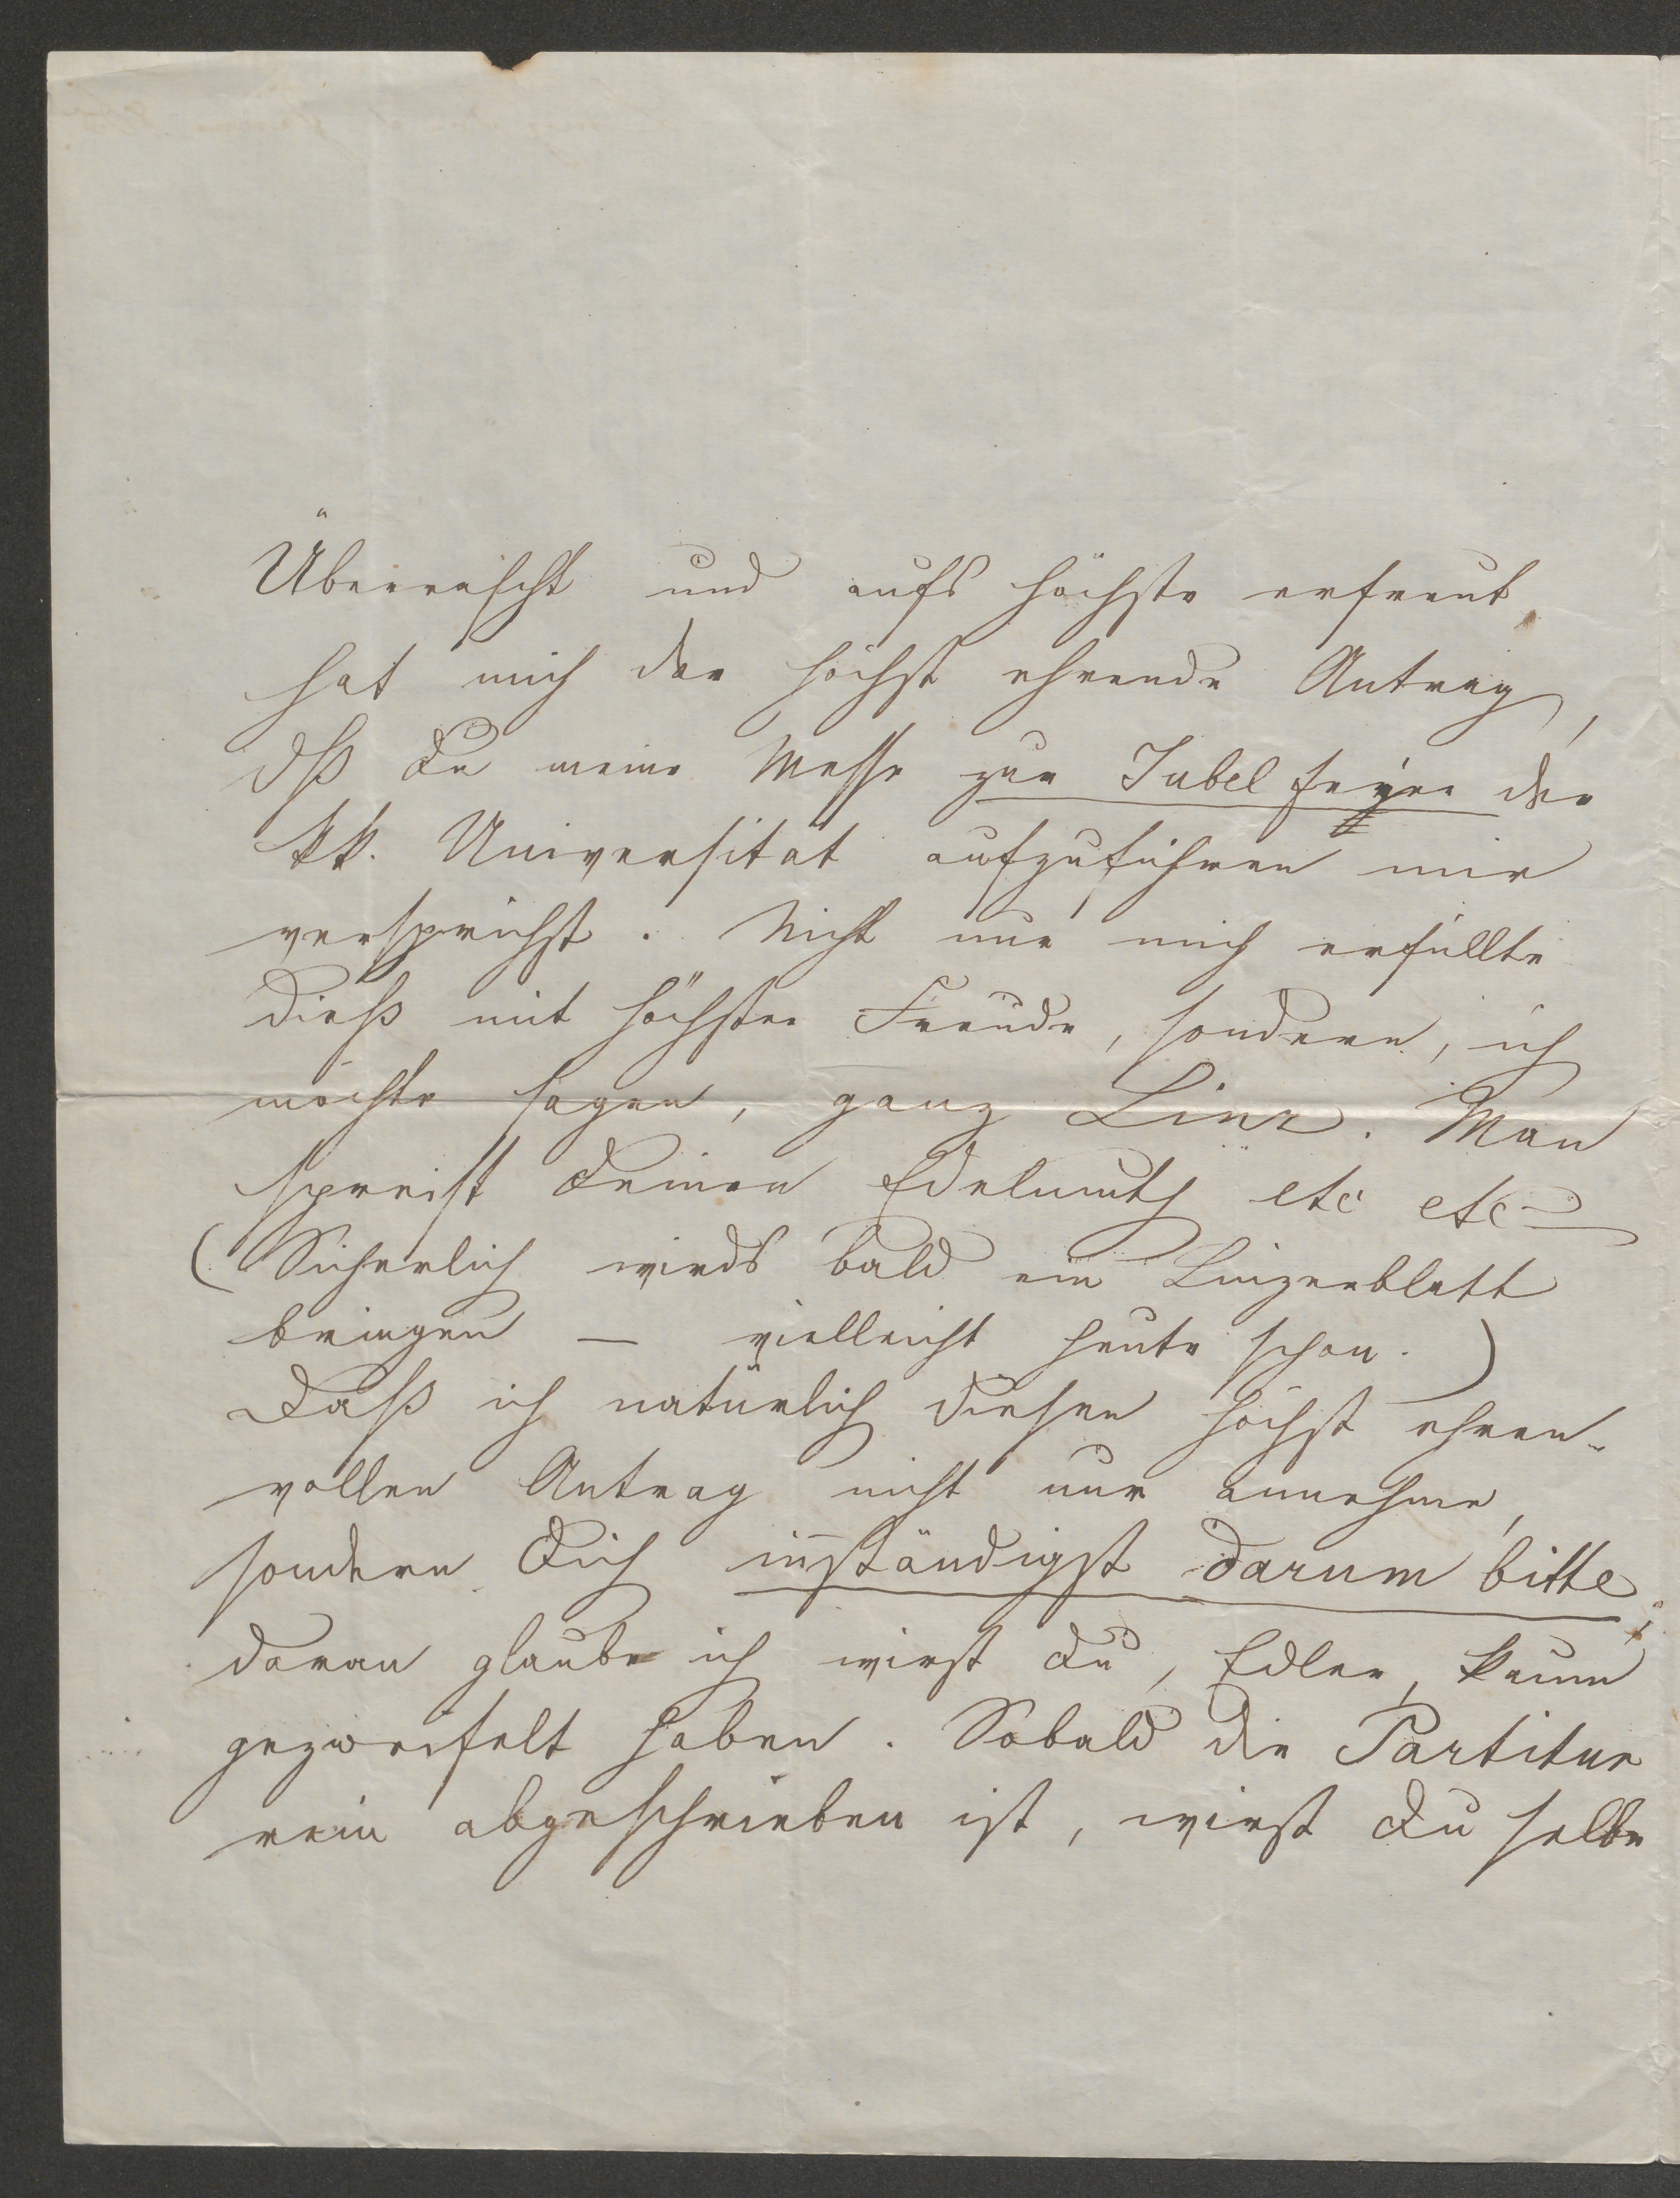 Überrascht und aufs höchste erfreut
hat mich der höchst ehrende Antrag,
dß Du meine Messe zur Jubelfeyer der
kk. Universität aufzuführen mir
versprichst. Nicht nur mich erfüllte
dieß mit höchster Freude, sondern, ich
möchte sagen, ganz Linz. Man
spreist Deinen Edelmuth etc etc
(Sicherlich wirds bald ein Linzerblatt
bringen — vielleicht heute schon.)
Daß ich natürlich diesen höchst ehren-
vollen Antrag nicht nur annehme,
sondern Dich inständigst darum bitte;
daran glaube ich wirst Du, Edler, kaum
gezweifelt haben. Sobald die Partitur
rein abgeschrieben ist, wirst Du selbe